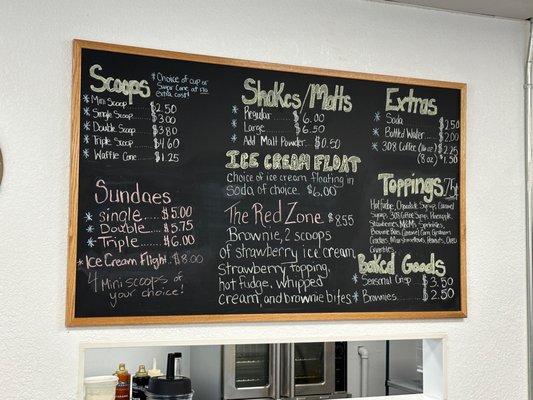 Scoops
*Choice of cup or
Sugar Cone at no
extra cost!
* Mini Scoop $2.50
* Single Scoop $3.00
* Double Scoop $3.80
* Triple Scoop $4.60
* Waffle Cone $1.25
Sundaes
* single $5.00
* Double $5.75
* Triple $6.00
* Ice Cream Flight $8.00
4 Mini scoops of
your choice!
Shakes/Malts
* Regular $6.00
* Large $6.50
* Add Malt Powder $0.50
ICE CREAM FLOAT
choice of ice cream floating in
soda of choice $6.00
The Red Zone $8.55
Brownie, 2 scoops
of strawberry ice cream
Strawberry topping,
hot fudge, whipped
cream, and brownie bites
Extras
* Soda $2.50
* Bottled Water $2.00
* 308 Coffee (16oz) $2.25
(8oz) $1.50
Toppings
Hot fudge, Chocolate Syrup, Caramel
Syrup, 308 Coffee Syrup, Pineapple,
Strawberries, M&M's, Sprinkles,
Brownie Bites, Caramel Corn, Graham
Crackers, Marshmallows, Peanuts, Oreo
Crumbles
Baked Goods
* Seasonal Crisp $3.50
* Brownies $2.50